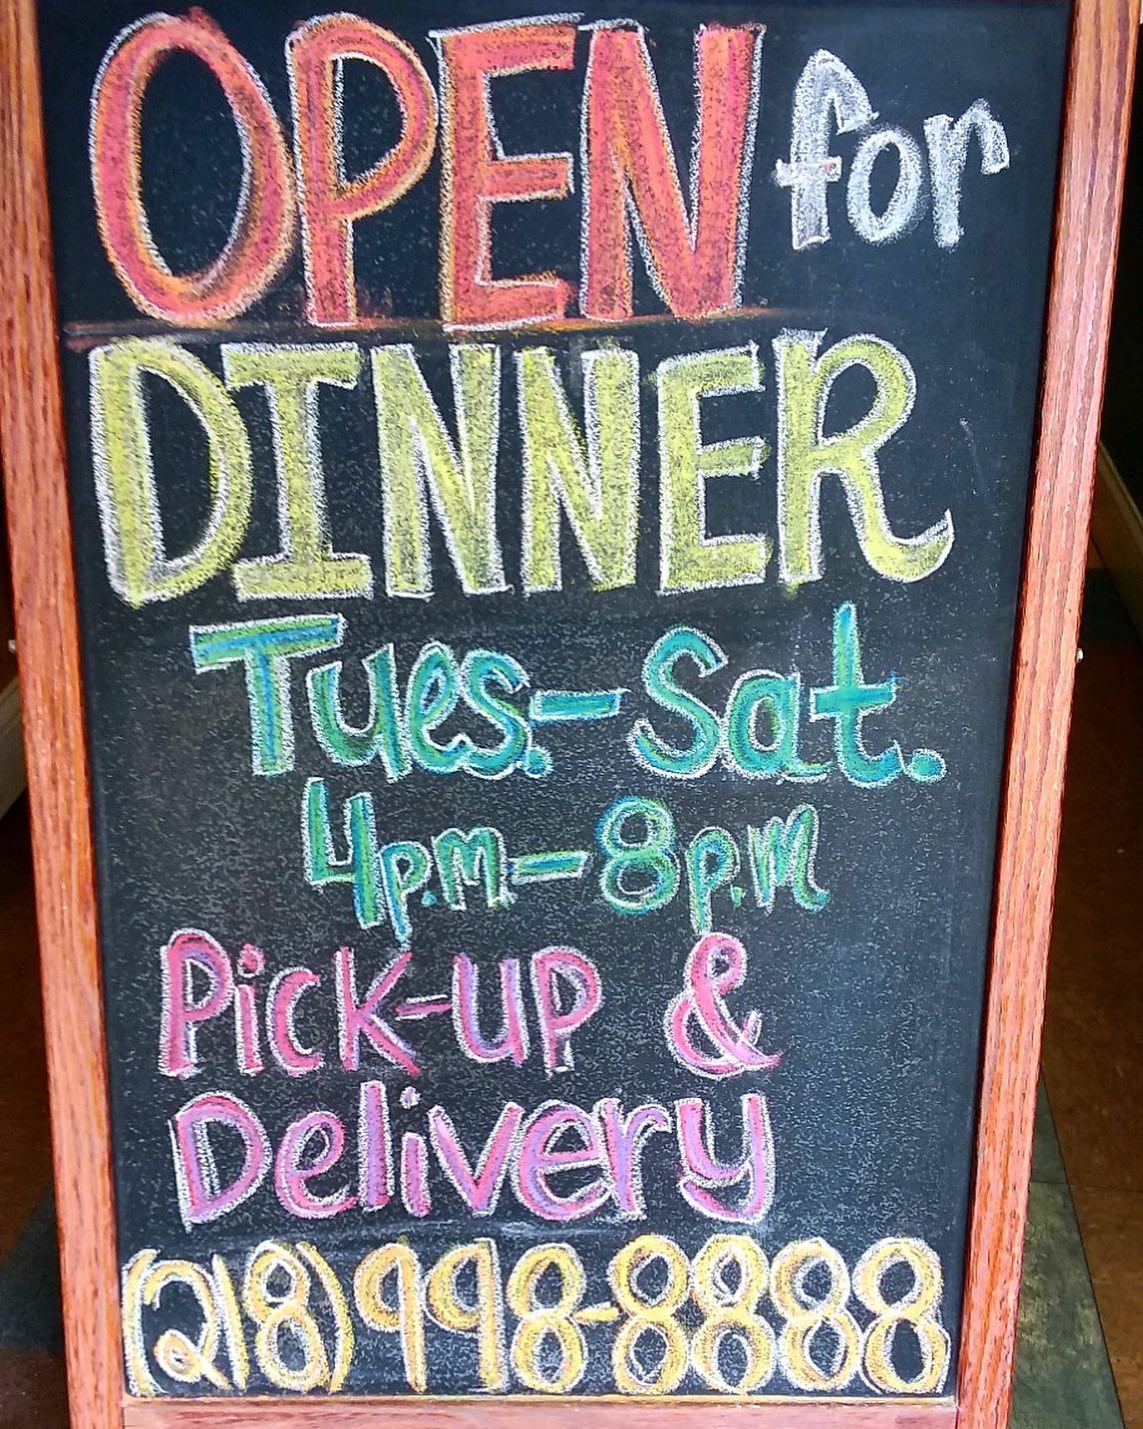 OPEN for
DINNER
Tues.-Sat.
4p.m.-8p.m
Pick-up &
Delivery
(218)998-8888